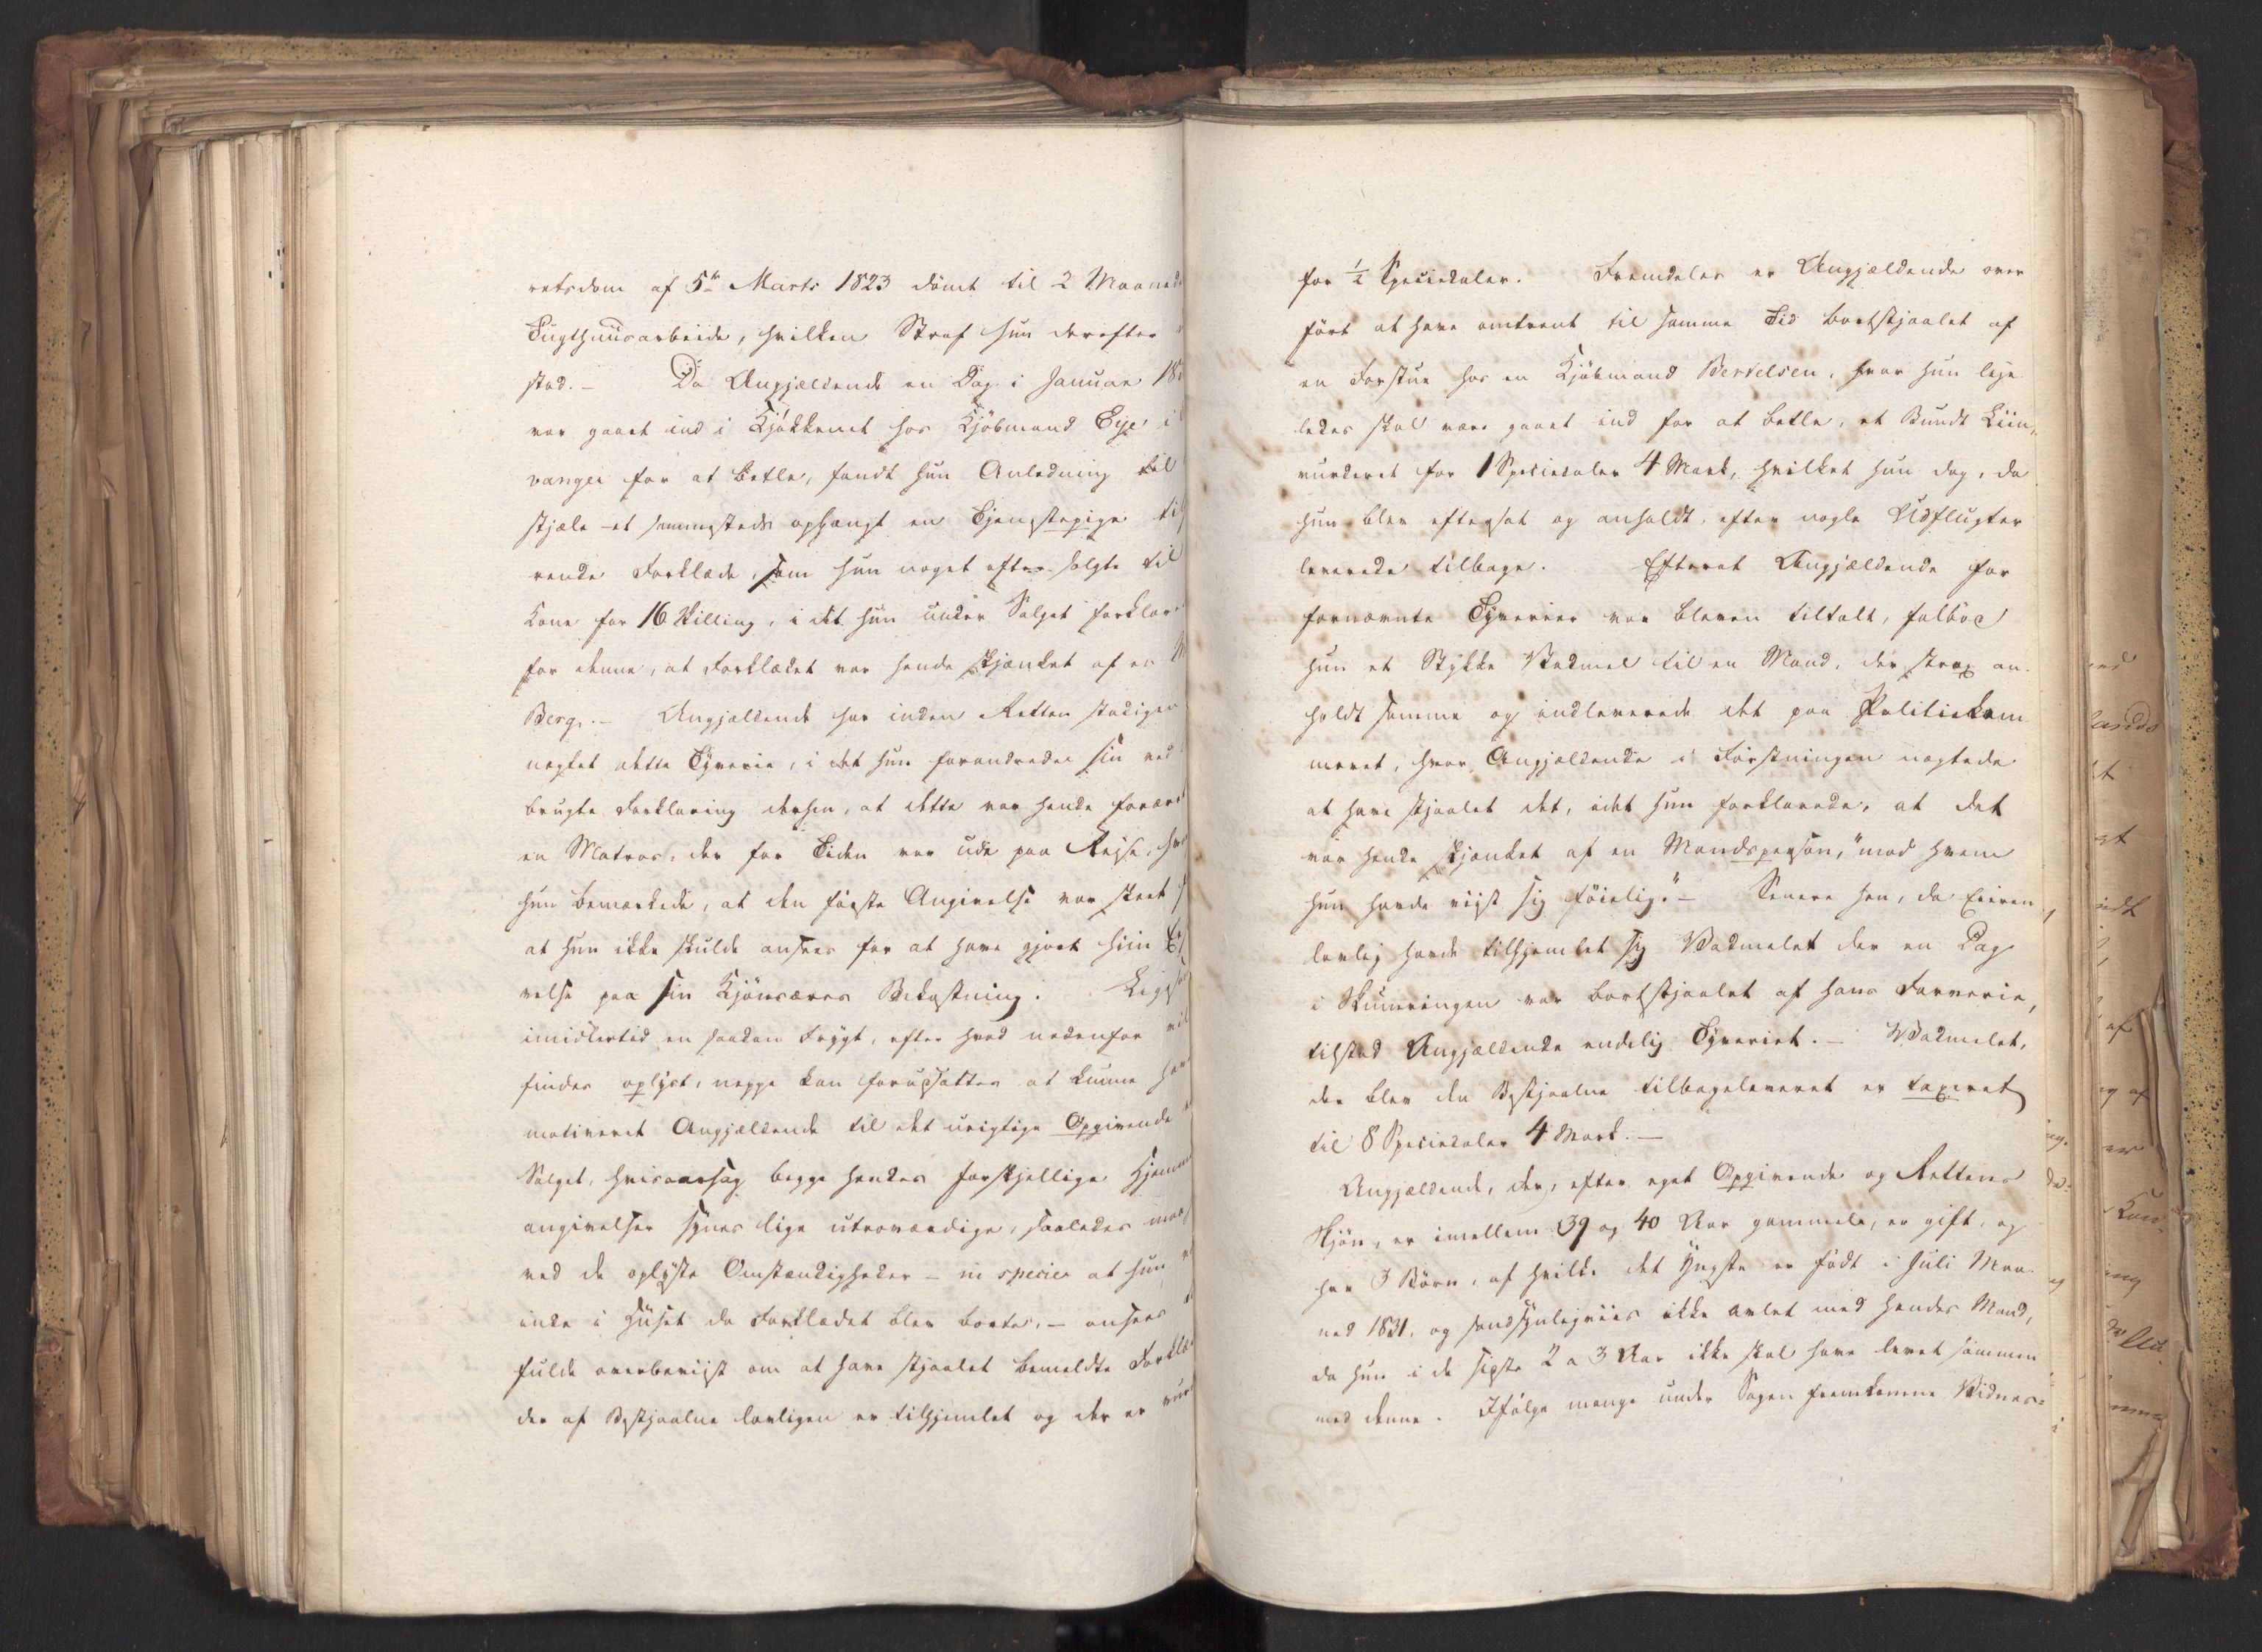 retsdom af 5te Marts 1823 dömt til 2 Maaned
Tugthuusarbeide, hvilken Straf hun derefter
stod. – Da Angjældende en Dag i Januar 18
var gaaet ind i Kjökkenet hos Kjöbmand Eije i
vanger for at betle, fandt hun Anledning til
stjæle et sammesteds ophængt en Tjenestepige til
rende Forklæde, som hun noget efter solgte til
Kone for 16 Skilling, i det hun under Salget forklar
for denne, at Forklædet var hende skjænket af en
Berg. – Angjældende har inden Retten stadigen
negtet dette Tyverie, i det hun forandrede sin ved
brugte Forklaring derhen, at dette var hende foræret
en Matros, der for Tiden var ude paa Rejse, hv
hun bemærkede, at den förste Angivelse var skeet
at hun ikke skulde ansees for at have gjort hiin
velse paa sin Kjönsæres Bekostning. Ligesom
imidlertid en saadan Frygt, efter hvad nedenfor vil
findes oplyst, neppe kan forudsættes at kunne hav
motiveret Angjældende til det urigtige Opgivende
Salget, hvisaarsag begge hendes forskjellige Hjemm
angivelser synes lige utroværdige, saaledes maa
ved de oplyste Omstændigheder – in specie at hun
inde i Huset da Forklædet blev borte, – ansees
fulde overbeviist om at have stjaalet bemeldte Forklæ
der af Bestjaalne lovligen er tilhjemlet og der er vur
for ½ Speciedaler. Fremdeles er Angjældende over
fört at have omtrent til samme Tid bortstjaalet af
en Forstue hos en Kjöbmand Bertelsen, hvor hun lige
ledes skal være gaaet ind for at betle, et Bundt Liin,
vurderet for 1 Speciedaler 4 Mark, hvilket hun dog, da
hun blev eftersat og anholdt, efter nogle Udflugter
leverede tilbage. Efterat Angjældende for
fornævnte Tyverier var bleven tiltalt, falböd
hun et Stykke Vadmel til en Mand, der strax an-
holdt samme og indleverede det paa Politiekam
meret, hvor Angjældende i Förstningen negtede
at have stjaalet det, idet hun forklarede, at det
var hende skjænket af en Mandsperson, "mod hvem
hun havde viist sig föielig." – Senere hen, da Eieren
lovlig havde tilhjemlet sig Vadmelet der en Dag
i Skumringen var bortstjaalet af hans Farverie,
tilstod Angjældende endelig Tyveriet. – Vadmelet,
der blev den Bestjaalne tilbageleveret er taxeret
til 8 Speciedaler 4 Mark. –
Angjældende, der, efter eget Opgivende og Rettens
Skjön, er imellem 39 og 40 Aar gammel, er gift, og
har 3 Börn, af hvilke det Yngste er födt i Juli Maa-
ned 1831, og sandsynligviis ikke avlet med hendes Mand,
da hun i de sidste 2 a 3 Aar ikke skal have levet sammen
med denne. Ifölge mange under Sagen fremkomne Vidnes-